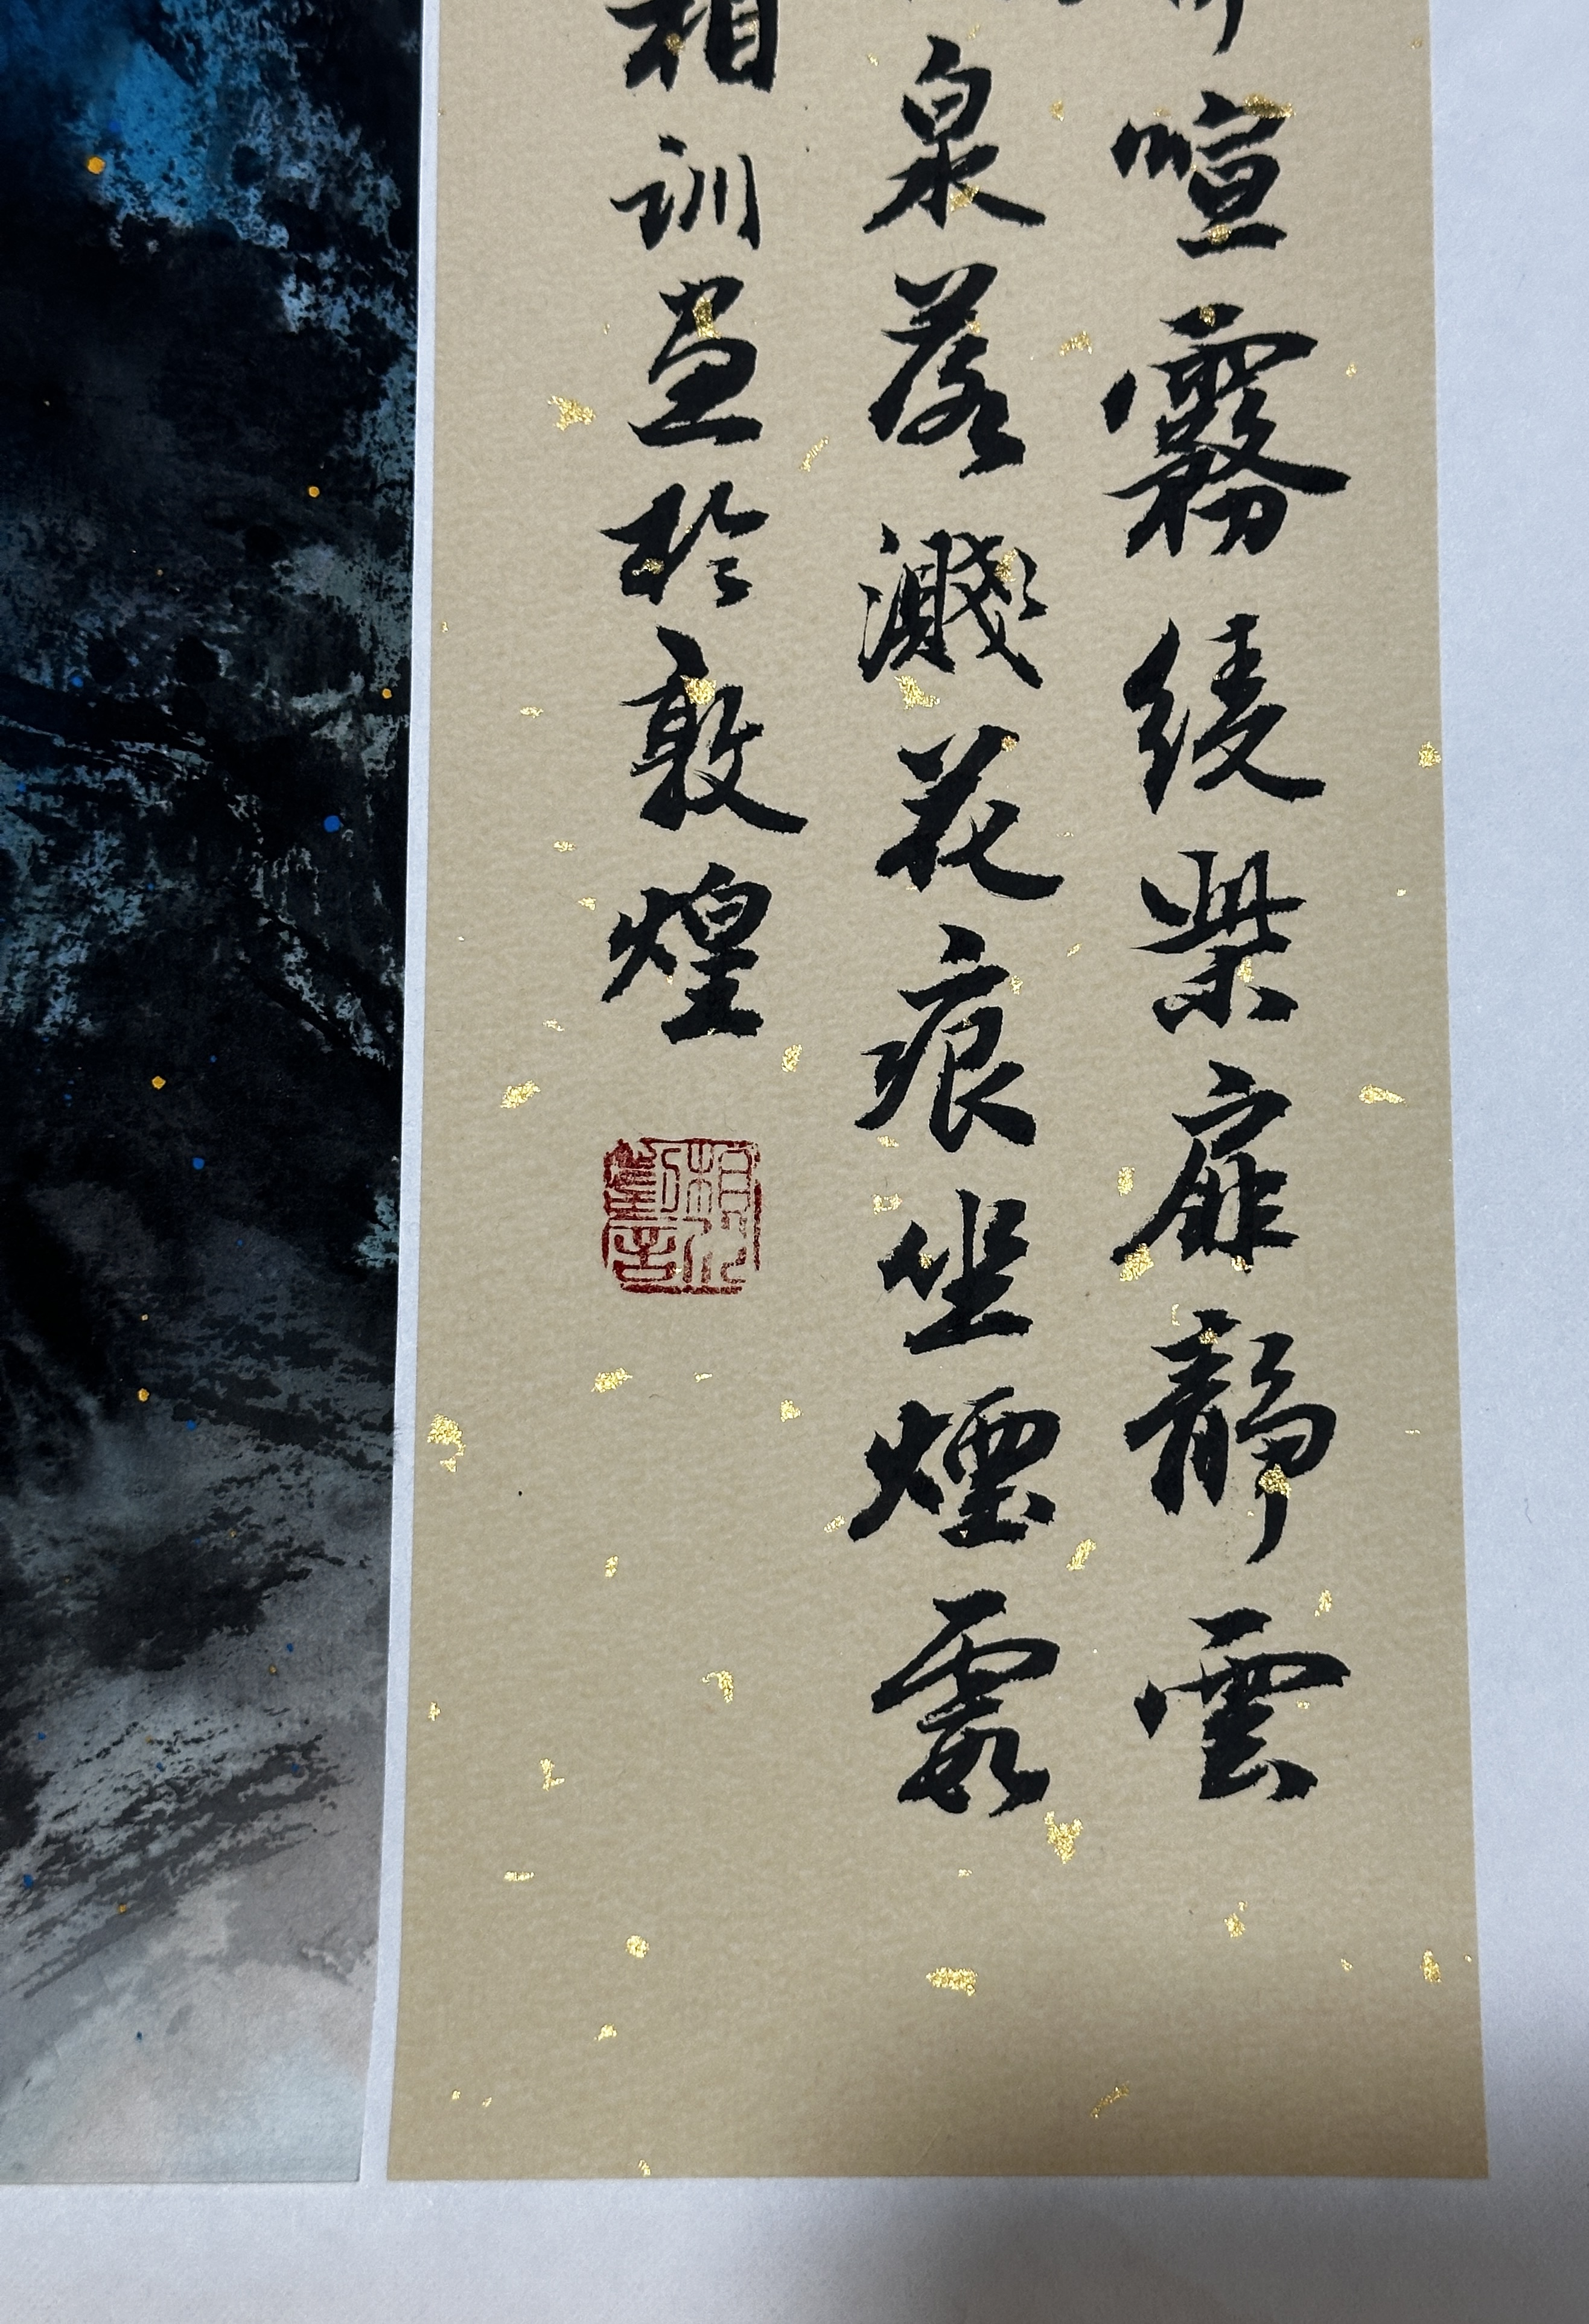 喧霧綾柴扉靜雲
泉落濺花痕坐煙霞
相訓畫於敦煌